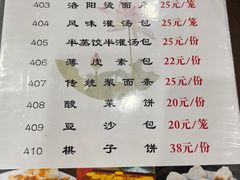 403 洛阳烫面角 25元/笼
404 风味灌汤包 25元/笼
405 半蒸饺半灌汤包 25元/份
406 薄皮素包 22元/份
407 传统浆面条 25元/份
408 酸菜饼 20元/份
409 豆沙包 20元/笼
410 棋子饼 38元/份